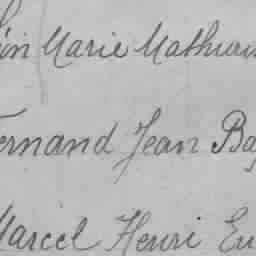 Marie Mathurin
Fernand Jean Ba
Marcel Henri Eu